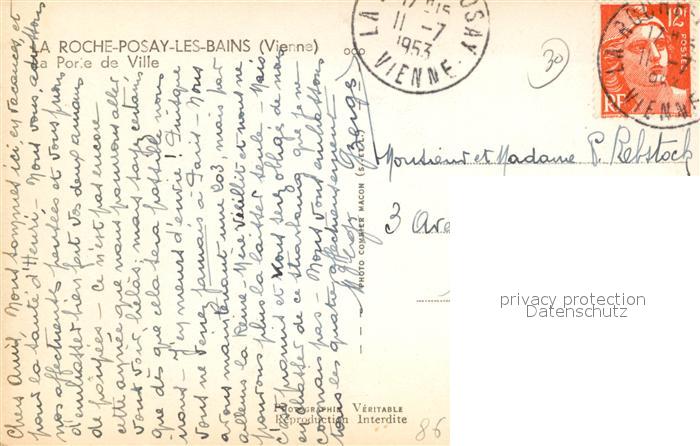 LA ROCHE-POSAY-LES-BAINS (Vienne)
La Porte de Ville
LA POSAY
17 15
11 -7
1953
VIENNE
12F
POSTES
RF
LA ROCHE
VIENNE
30
Monsieur et Madame P. Rebstock
3 Ave
privacy protection
Datenschutz
PHOTO COMBIER MACON
Chers Amis, Nous sommes ici, en vacances, et
pour la santé d'Henri - Nous vous adressons
nos affectueuses pensées et vous prions
d'embrasser bien fort vos deux amours
de poupées - Ce n'est pas encore
cette année que nous pourrons aller
vous voir hélas, mais soyez certains
que dès que cela sera possible nous
irons - J'en meurs d'envie ! Puisque
vous ne venez jamais à Paris - Nous
avons maintenant une 203, mais par
ailleurs la Reine-Mère vieillit et nous ne
pouvons plus la laisser seule - Mais
c'est promis et vous serez obligé de nous
emmener de ce Strasbourg que je ne
connais pas - Nous vous embrassons
tous les quatre affectueusement
PHOTOGRAPHIE VÉRITABLE
Reproduction Interdite
86